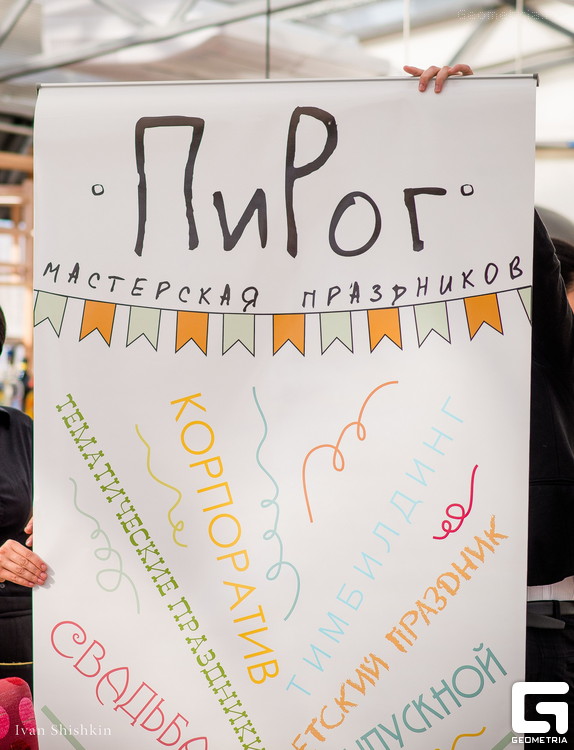 ·ПиРог·
МАСТЕРСКАЯ ПРАЗДНИКОВ
ТЕМАТИЧЕСКИЕ ПРАЗДНИКИ
КОРПОРАТИВ
ТИМБИЛДИНГ
ЕТСКИЙ ПРАЗДНИК
СВАДЬБА
ЫПУСКНОЙ
Ivan Shishkin
GEOMETRIA